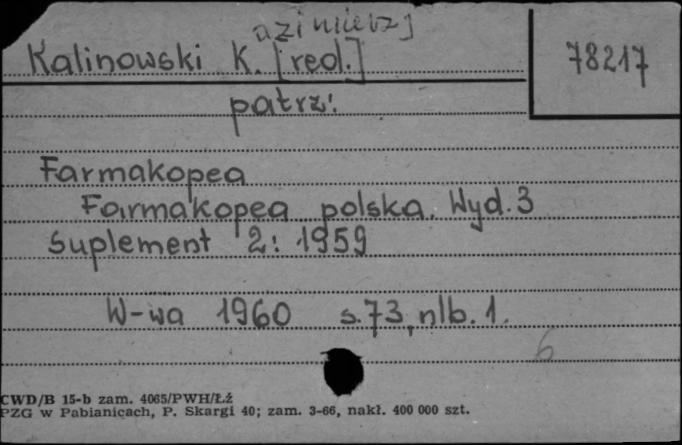 azimierz]
Kalinowski K. [red.]
78217
patrz:
Farmakopea
Farmakopea polska. Wyd. 3
Suplement 2: 1959
W-wa 1960 s. 73, nlb. 1.
6
CWD/B 15-b zam. 4065/PWH/Łź
PZG w Pabianicach, P. Skargi 40; zam. 3-66, nakł. 400 000 szt.